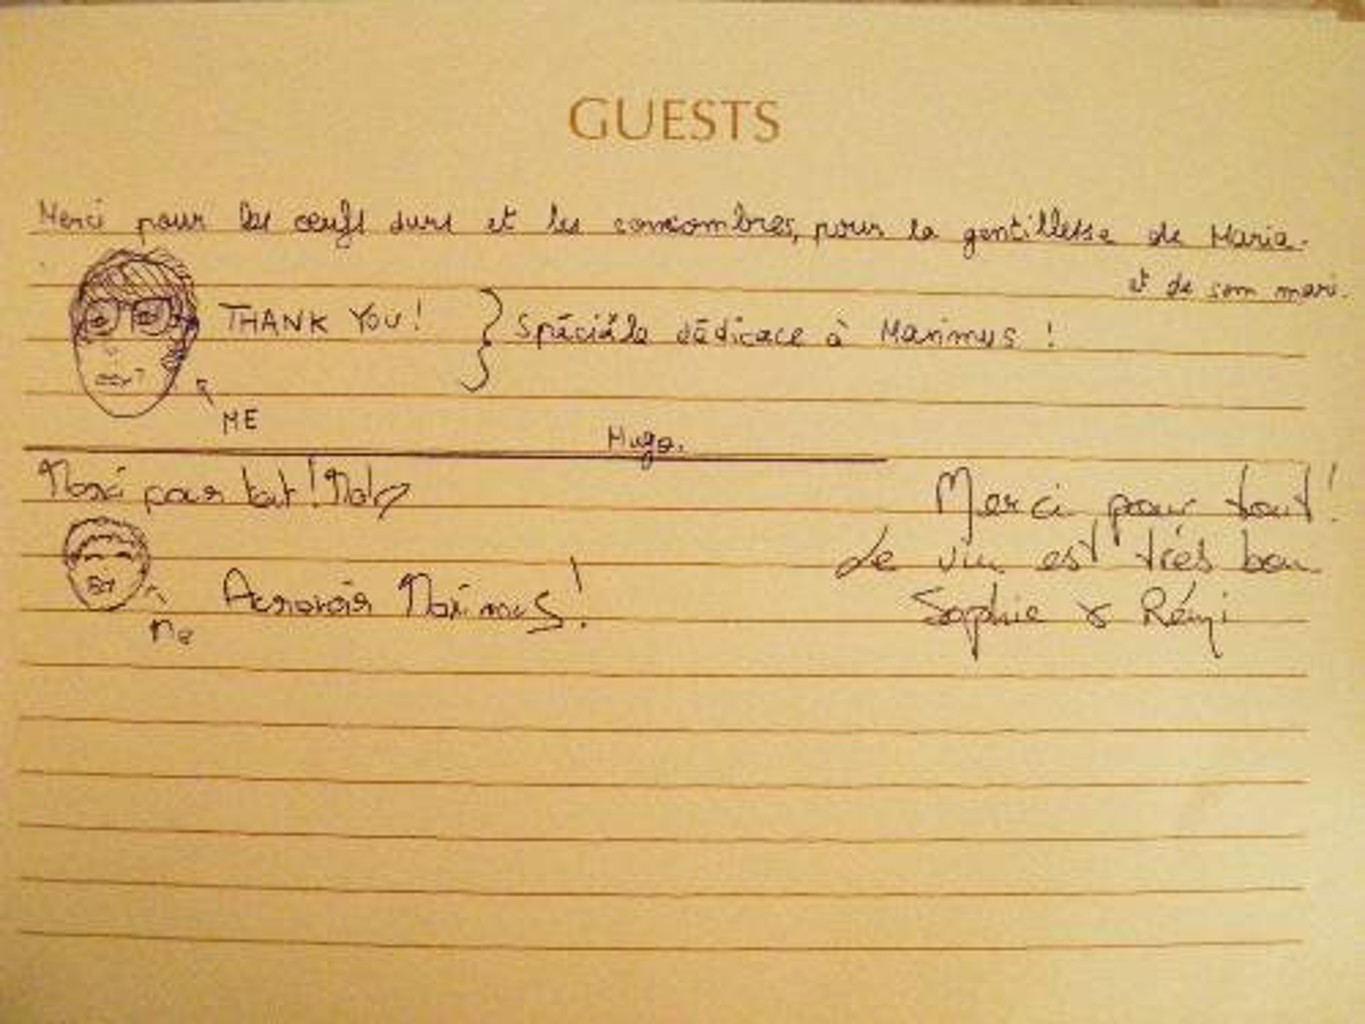 GUESTS
Merci pour les œufs durs et les concombres, pour la gentillesse de Maria.
et de son mari.
THANK YOU!
Spéciale dédicace à Maximus !
ME
Hugo.
Merci pour tout!
Me
Aurevoir Maximus!
Merci pour tout!
Le vin est très bon
Sophie & Rémi